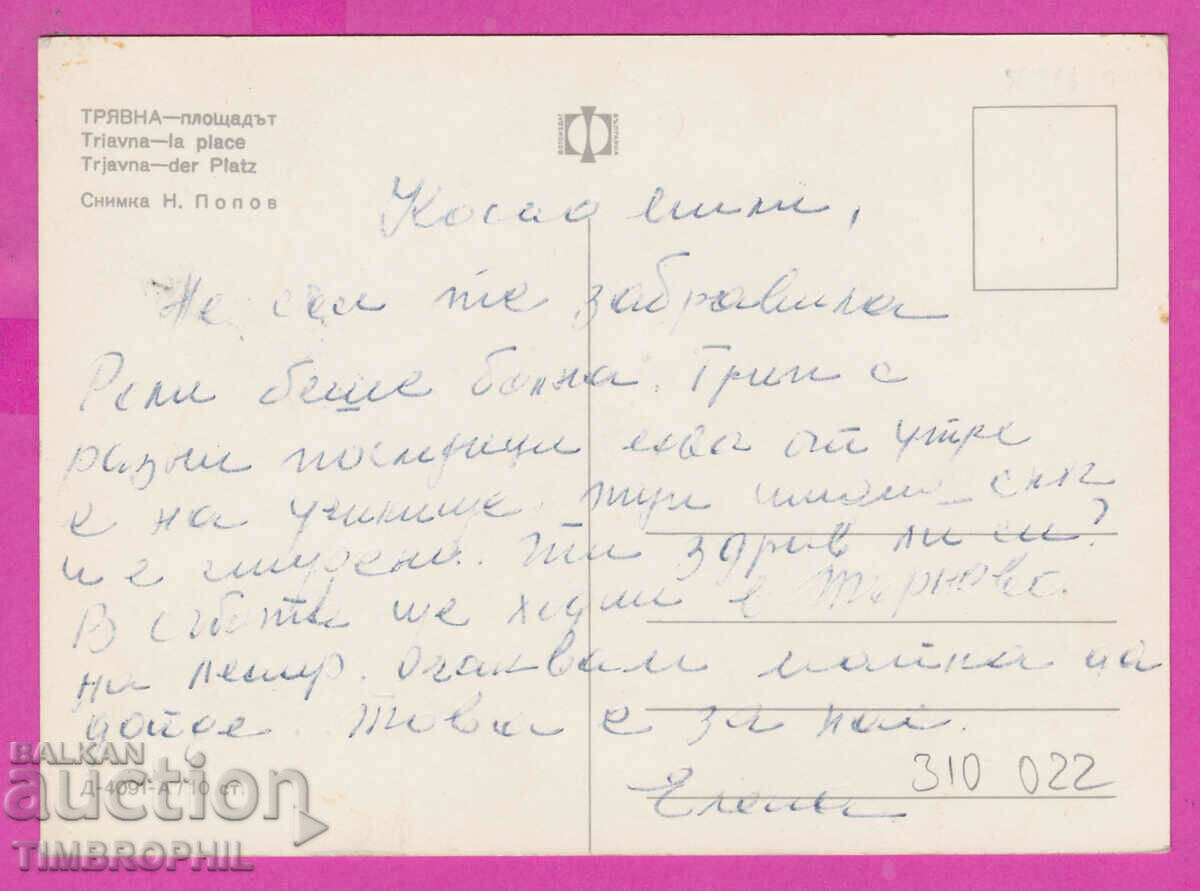 ТРЯВНА—площадът
Triavna—la place
Trjavna—der Platz
Снимка Н. Попов
БЪЛГАРИЯ
Не съм те забравила
беше болна. Грип с
разни последици едва от утре
е на училище. Тук имаме сняг
и е студено. Ти здрав ли си?
В събота ще ходим в Търново
на театър. Очаквам майка да
дойде. Това е за нас.
Елена
310 022
Д-4091-А / 10 ст.
BALKAN
auction
TIMBROPHIL